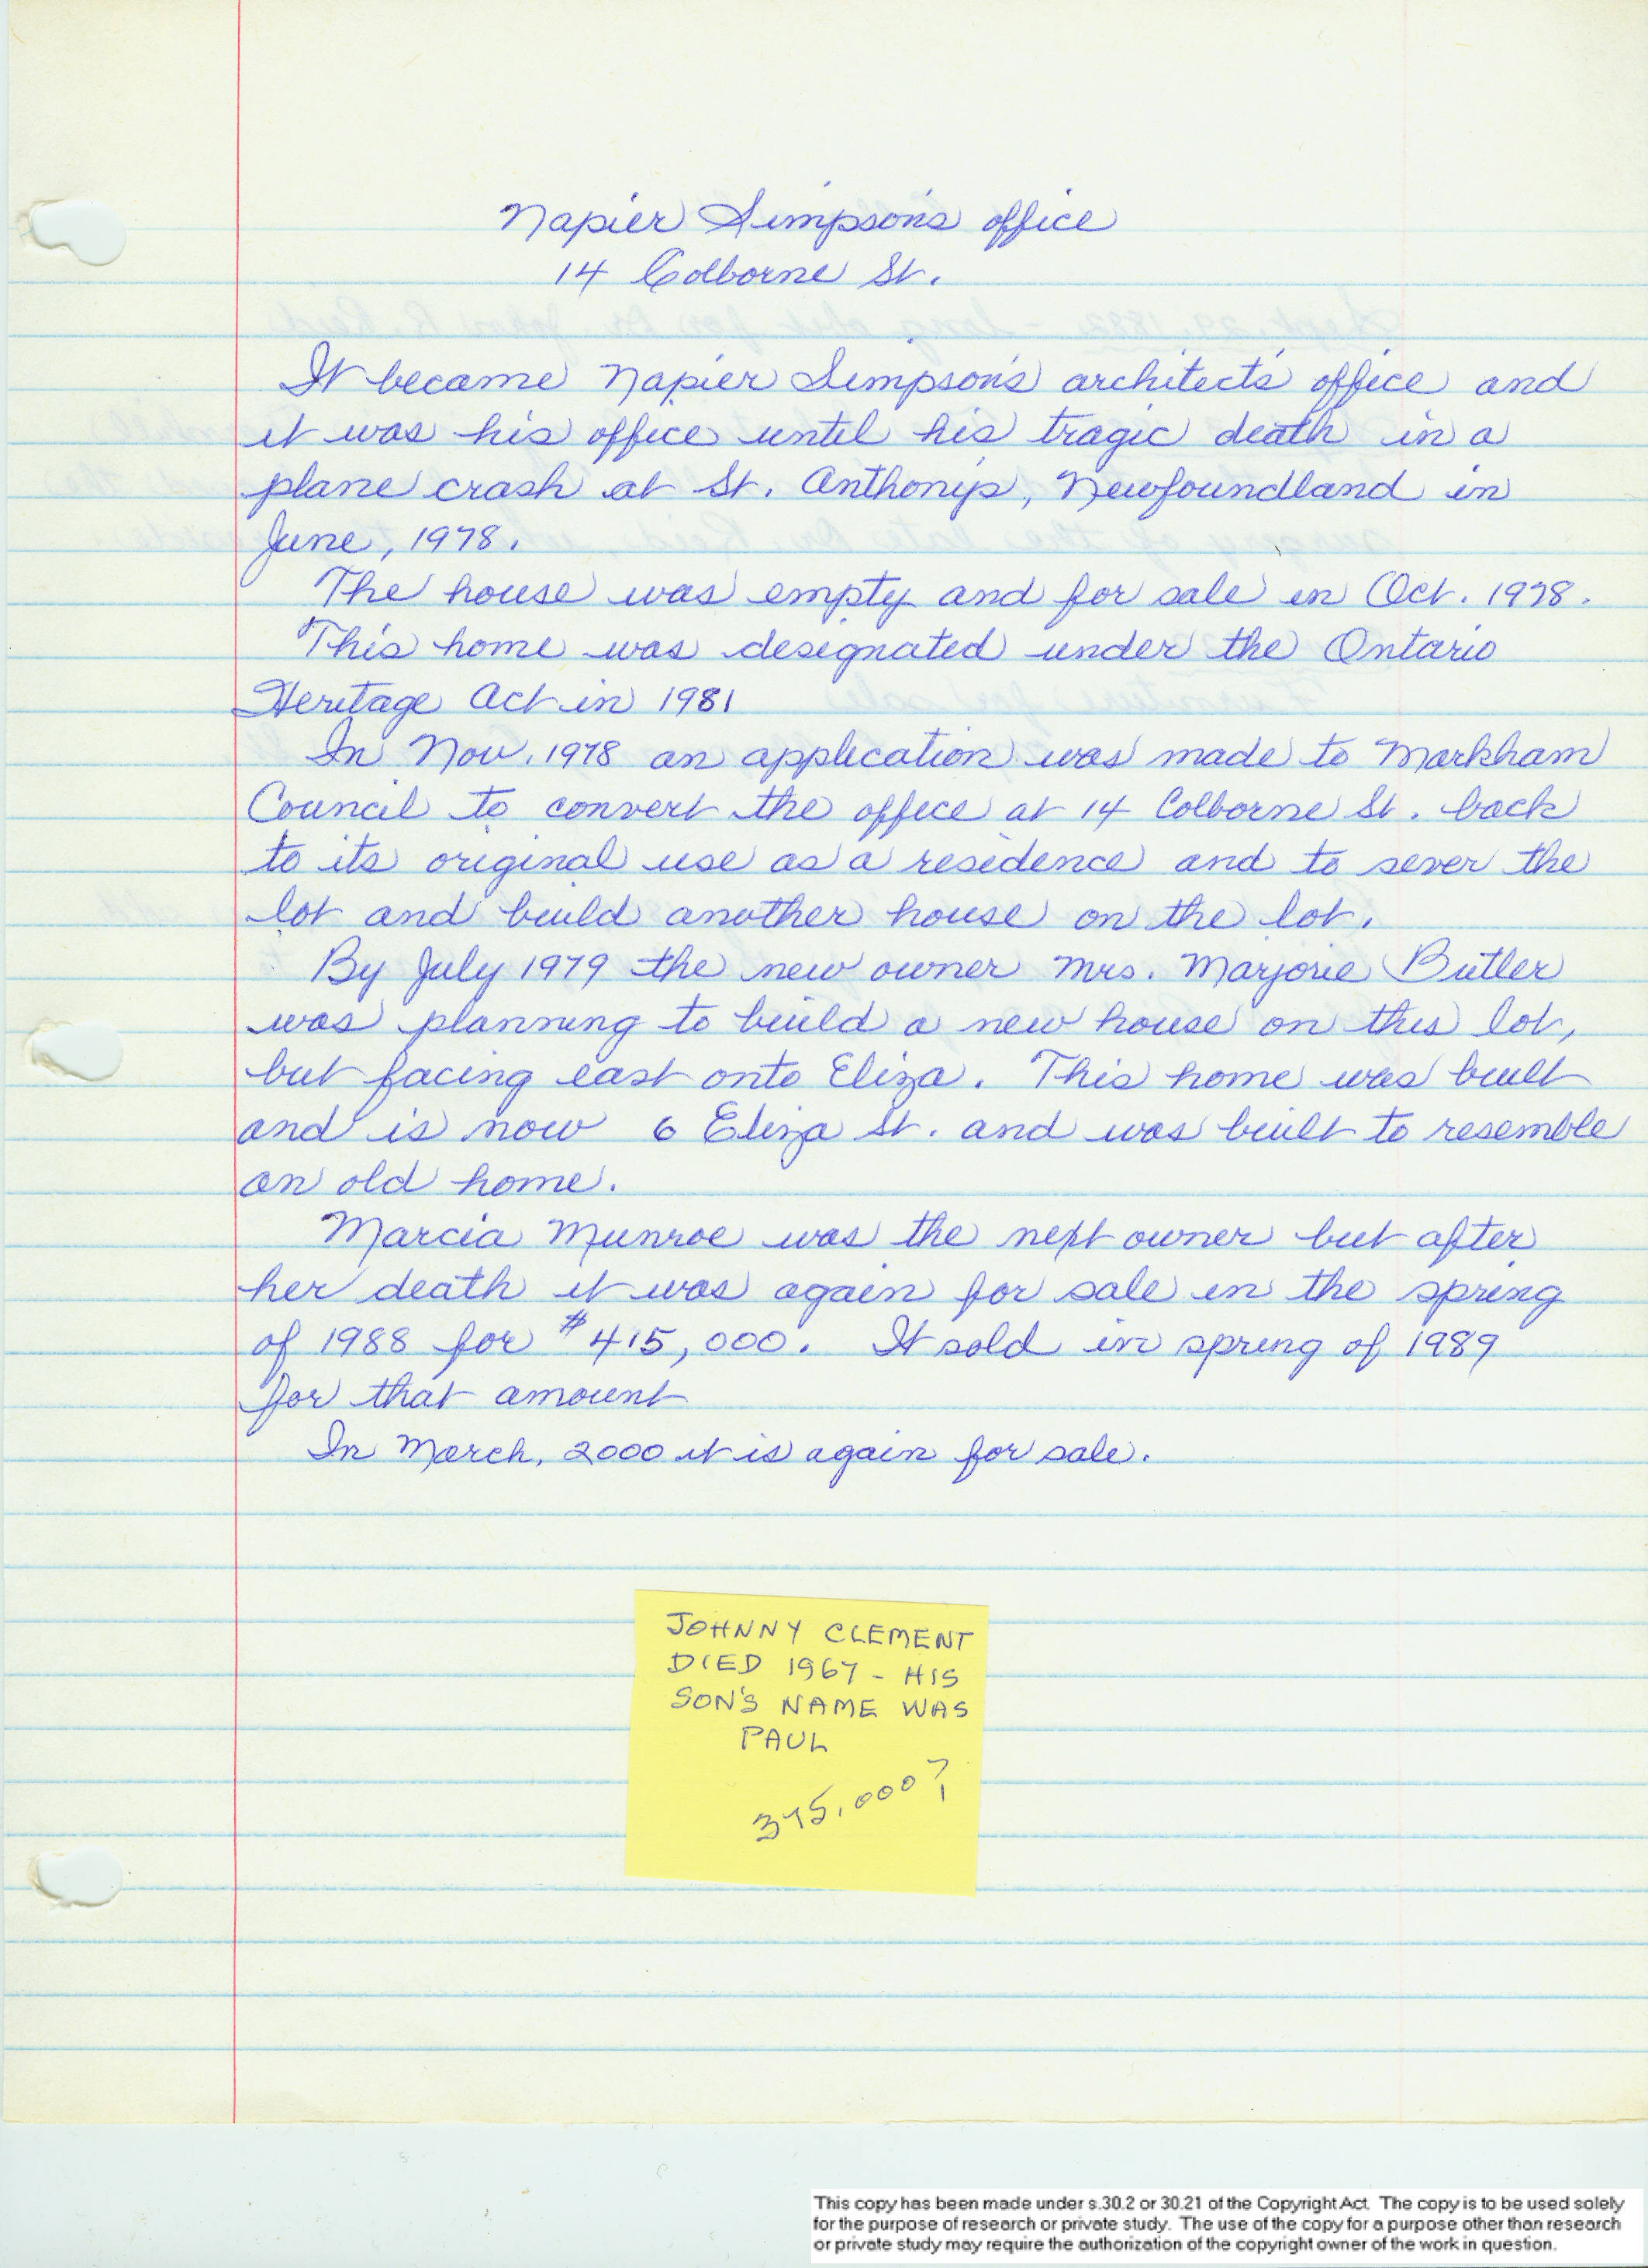 Napier Simpson's office
14 Colborne St.
It became Napier Simpson's architect's office and
it was his office until his tragic death in a
plane crash at St. Anthony's, Newfoundland in
June, 1978.
The house was empty and for sale in Oct. 1978.
This home was designated under the Ontario
Heritage Act in 1981
In Nov. 1978 an application was made to Markham
Council to convert the office at 14 Colborne St. back
to its original use as a residence and to sever the
lot and build another house on the lot.
By July 1979 the new owner Mrs. Marjorie Butler
was planning to build a new house on this lot,
but facing east onto Eliza. This home was built
and is now 6 Eliza St. and was built to resemble
an old home.
Marcia Munroe was the next owner but after
her death it was again for sale in the spring
of 1988 for $415,000. It sold in spring of 1989
for that amount
In March, 2000 it is again for sale.
JOHNNY CLEMENT
DIED 1967 - HIS
SON'S NAME WAS
PAUL
375,000?
This copy has been made under s.30.2 or 30.21 of the Copyright Act. The copy is to be used solely
for the purpose of research or private study. The use of the copy for a purpose other than research
or private study may require the authorization of the copyright owner of the work in question.